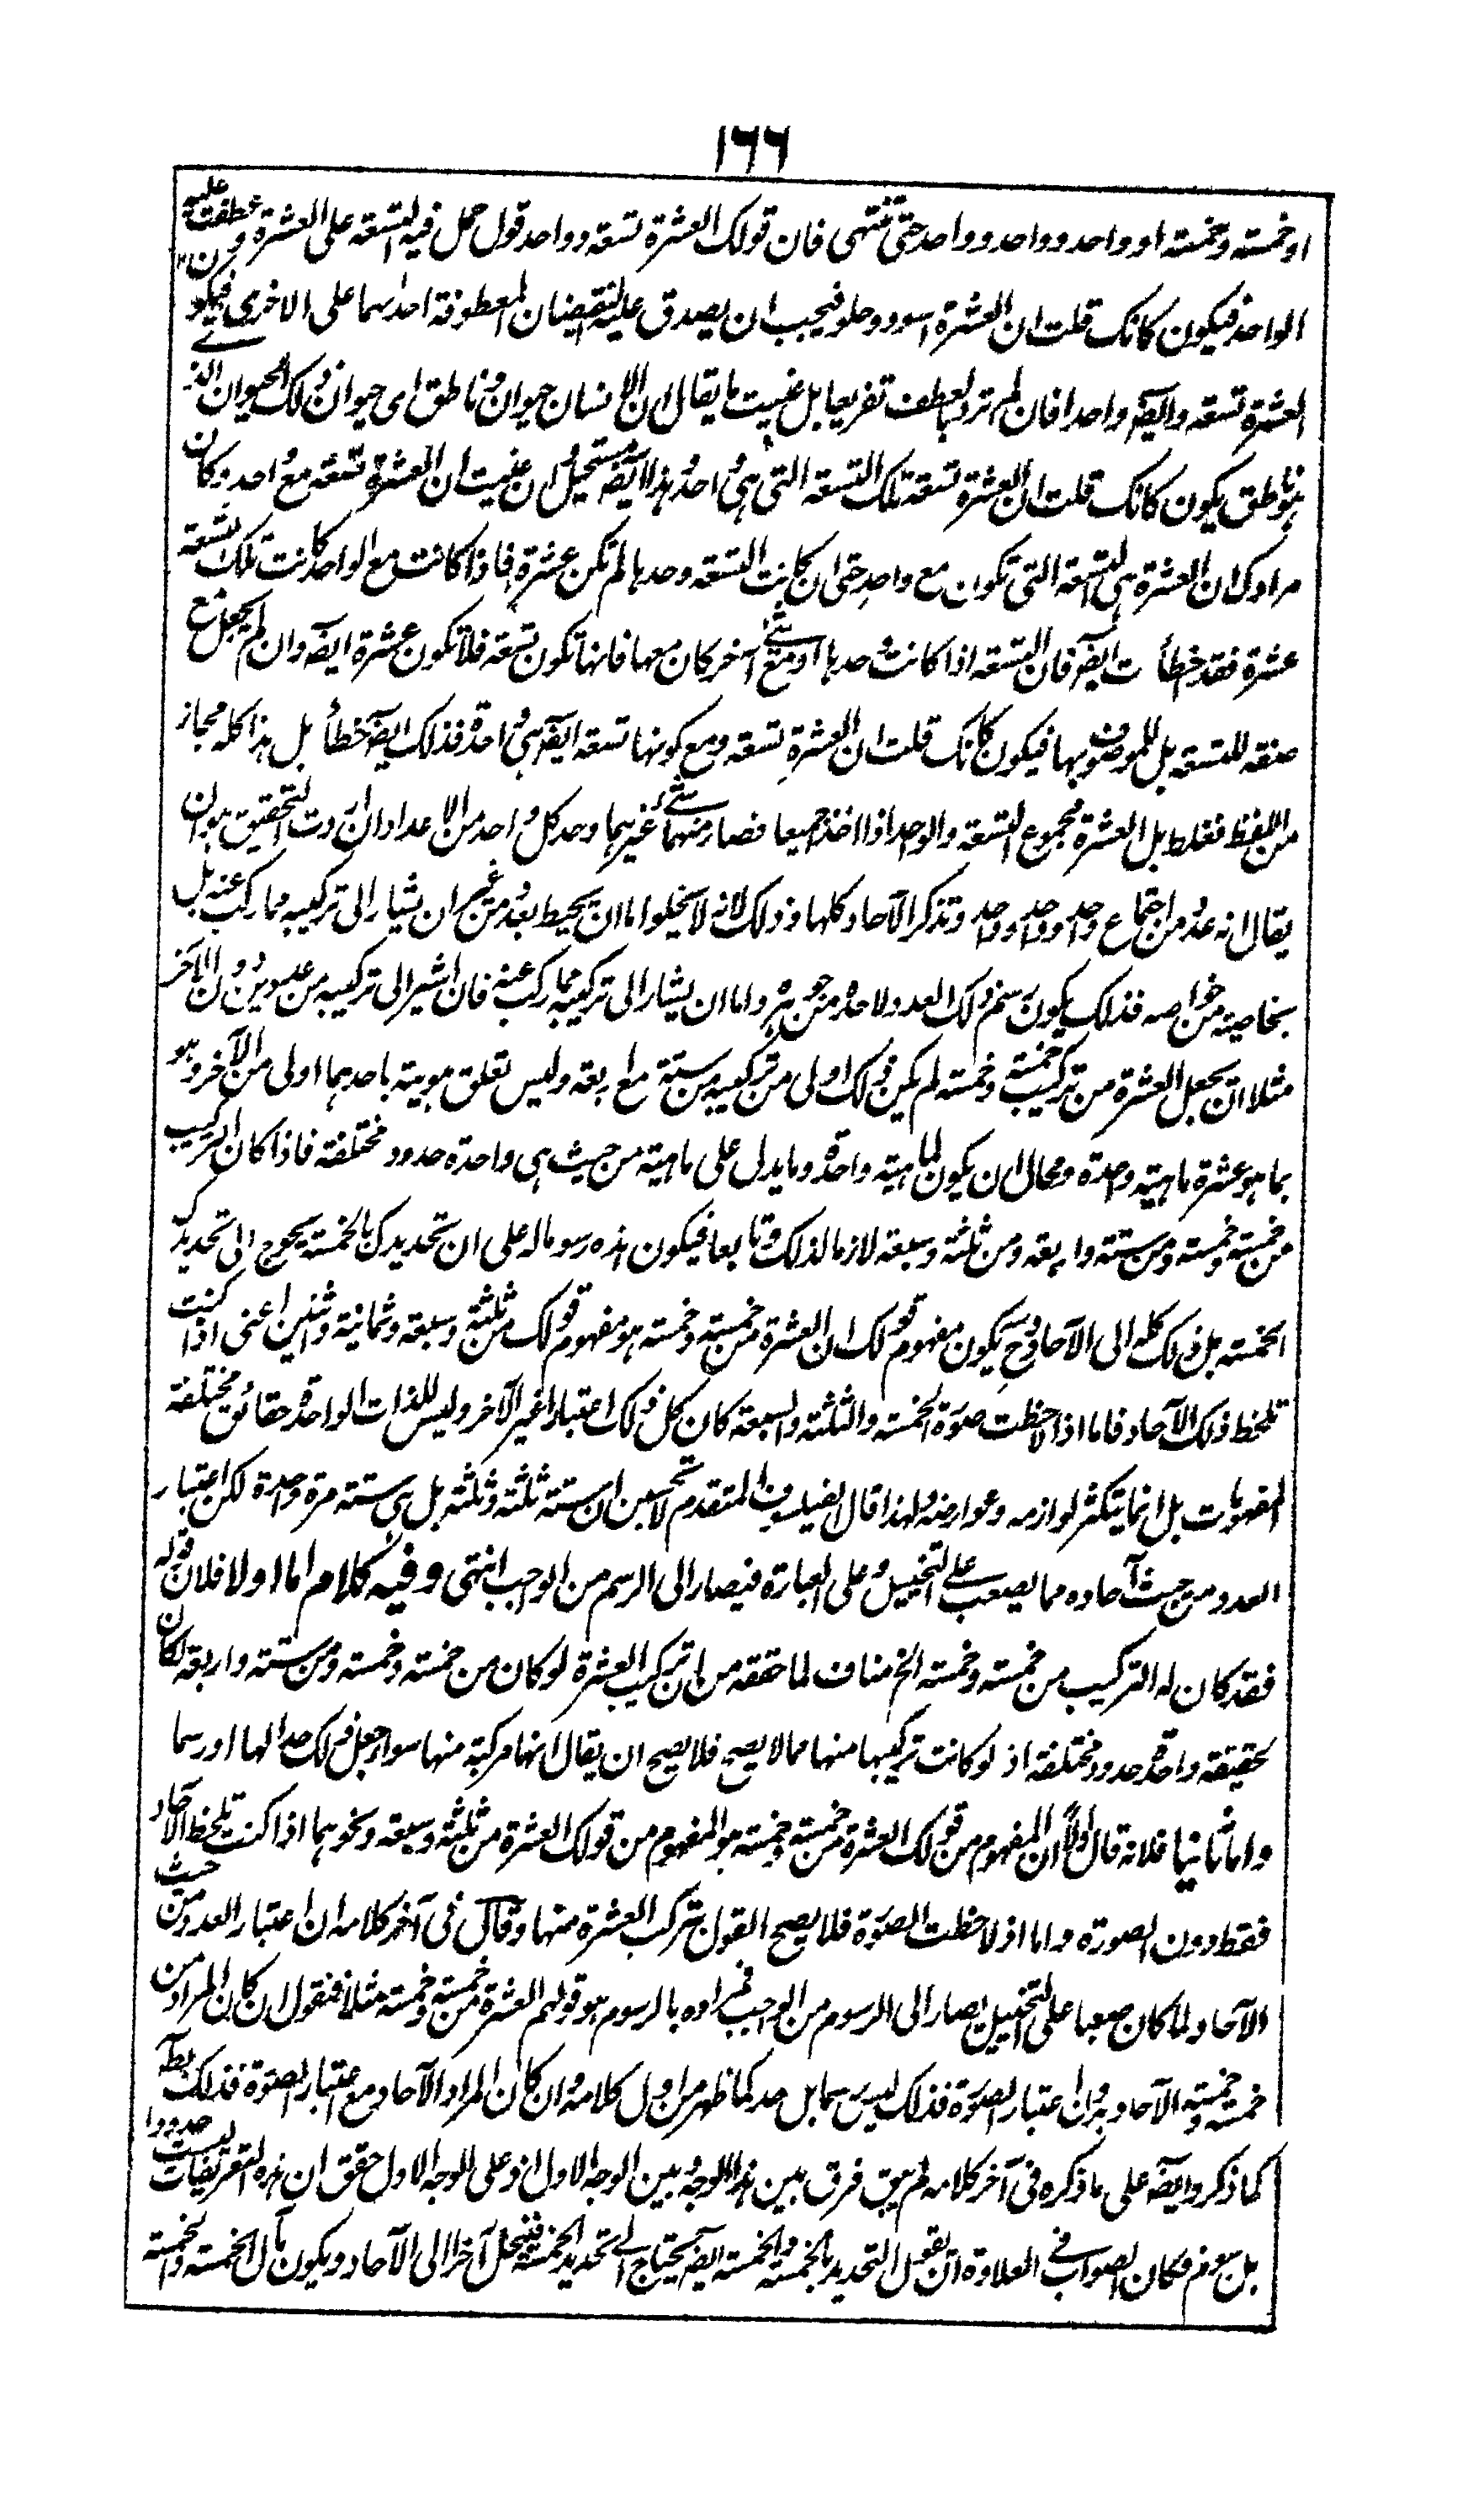 ١٦٦
او خمسته وخمسته او وواحد وواحد وواحد حتى تنتهى فان قولك العشرة تسعة وواحد قول حمل فيه التسعة على العشرة وعطفت عليه
الواحد فيكون كانك قلت ان العشرة اسود وحلو فيجب ان يصدق عليه النقيضان المعطوفة احدٰهما على الاخرى فيكون
العشرة تسعة وايضه واحدا فان لم ترد بالعطف تعريفا بل عنيت ما يقال ان الانسان حيوان وناطق اى حيوان وذلك الحيوان الذى
هو ناطق يكون كانك قلت ان العشرة تسعة تلك التسعة التى هى واحد وهذا ايضه مستحيل وان عنيت ان العشرة تسعة مع واحد وكان
مرادك ان العشرة هى التسعة التى تكون مع واحد حتى ان كانت التسعة وحدها لم تكن عشرة فاذا كانت مع الواحد كانت تلك التسعة
عشرة فقد اخطأت ايضه فان التسعة اذا كانت وحدها او مع شئ آخر كان معها فانها تكون تسعة فلا تكون عشرة ايضه وان لم تجعل مع
صفة للتسعة بل للموصوف بها فيكون كانك قلت ان العشرة تسعة ومع كونها تسعة ايضه هى واحدة فذلك ايضه خطأ بل هذا كله مجاز
من اللفظ مغلط بل العشرة مجموع التسعة والواحد اذا اخذا جميعا فصار منهما شئ غيرهما وحد كل واحد من الاعداد ان اردت التحقيق هو ان
يقال انه عدد من اجتماع واحد وواحد وواحد وتذكر الآحاد كلها وذلك لانه لا يخلوا اما ان يحيط بعدد من غير ان يشار الى تركيبه مما ركب عنه بل
بخاصية من خواصه فذلك يكون رسم ذلك العدد لا حده من جوهره واما ان يشار الى تركيبه مما ركب عنه فان اشير الى تركيبه من عددين دون الآخر
مثلا ان يجعل العشرة من تركيب خمسة وخمسة لم يكن ذلك اولى من تركيبه من ستة مع اربعة وليس تعلق هويته باحدهما اولى من الآخر وهو
بما هو عشرة ماهية واحدة ومحال ان يكون لماهية واحدة وما يدل على ماهية من حيث هى واحدة حدود مختلفة فاذا كان التركيب
من خمسة وخمسة ومن ستة واربعة ومن ثلثة وسبعة لازما لذلك وتابعا فيكون هذه رسوما له على ان تحديدك بالخمسة يحوج الى تحديد
الخمسة بل ذلك كله الى الآحاد وح يكون مفهوم قولك ان العشرة من خمسة وخمسة هو مفهوم قولك من ثلثة وسبعة وثمانية واثنين اعنى اذا كنت
تلحظ ذلك الآحاد فاما اذا لاحظت صورة الخمسة والثلثة والسبعة كان كل ذلك اعتبارا غير الآخر وليس للذات الواحدة حقائق مختلفة
المفهومات بل انما يتكثر لوازمه وعوارضه ولهذا قال الفيلسوف المتقدم لا تحسبن ان ستة ثلثة وثلثة بل هى ستة مرة واحدة لكن اعتبار
العدد من حيث آحاده مما يصعب على التخييل وعلى العبارة فيصار الى الرسم من الواجب انتهى وفيه كلام اما اولا فلان قوله
فقد كان له التركيب من خمسة وخمسة الخ مناف لما حققه من ان تركيب العشرة لو كان من خمسة وخمسة ومن ستة واربعة لكان
لحقيقة واحدة حدود مختلفة اذ لو كانت تركيبها منها مما لا يصح فلا يصح ان يقال انها مركبة منها سواء جعل ذلك حدا لها او رسما
واما ثانيا فلانه قال اولا ان المفهوم من قولك العشرة من خمسة وخمسة هو المفهوم من قولك العشرة من ثلثة وسبعة ونحوهما اذا كنت تلحظ الآحاد
فقط دون الصورة واما اذ لاحظت الصورة فلا يصح القول بتركب العشرة منها وقال فى آخر كلامه ان اعتبار العدد من حيث
الآحاد لما كان صعبا على التخييل يصار الى الرسوم من الواجب فمراده بالرسوم هو قولهم العشرة من خمسة وخمسة مثلا فنقول ان كان المراد من
خمسة وخمسة الآحاد بدون اعتبار الصورة فذلك ليس رسما بل حد كما ظهر من اول كلامه وان كان المراد الآحاد مع اعتبار الصورة فذلك بط
كما ذكر وايضه على ما ذكره فى آخر كلامه لم يبق فرق بين هذا الوجه وبين الوجه الاول اذ على الوجه الاول حقق ان هذه التعريفات ليست حدودا
بل رسوم وكان الصواب فى العلاوة ان يقول التحديد بالخمسة والخمسة ايضه يحتاج الى تحديد الخمسة فينحل آخرا الى الآحاد ويكون مآل الخمسة والخمسة